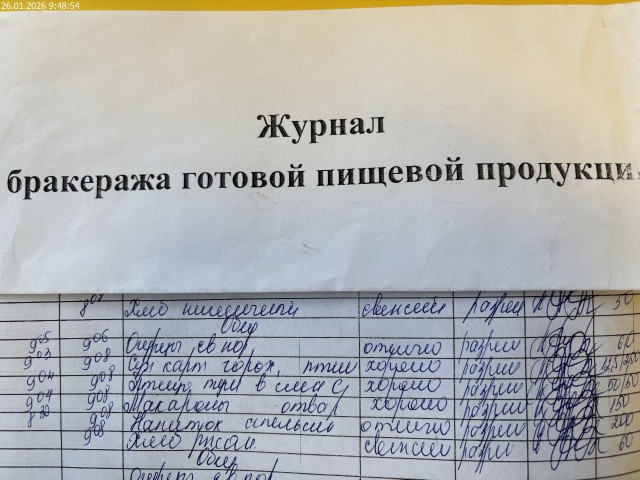 26.01.2026 9:48:54
Журнал
бракеража готовой пищевой продукци
Хлеб пшеничный свежий разреш 50
Обед
905 906 Огурец св пор отлично разреш 60
903 908 Суп карт горох, птиц хорошо разреш
904 908 Птица туш в смет с хорошо разреш
904 908 Макароны отвар хорошо разреш 150
908 Напиток апельсин отлично разреш 200
908 Хлеб ржан свежий разреш 60
Обед
Огурец св пор